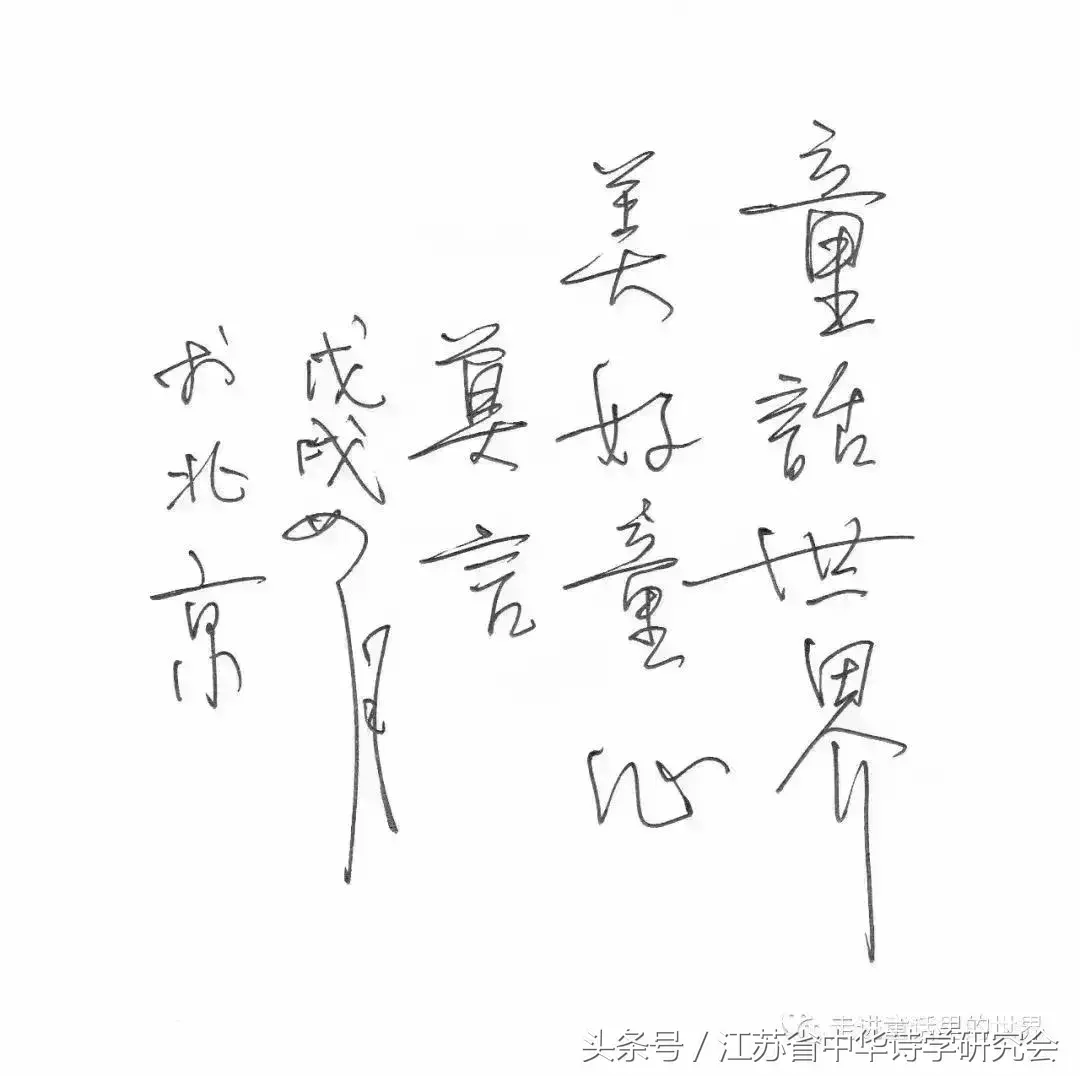 童話世界
美好童心
莫言
戊戌月
於北京
走进童话里的世界
头条号 / 江苏省中华诗学研究会